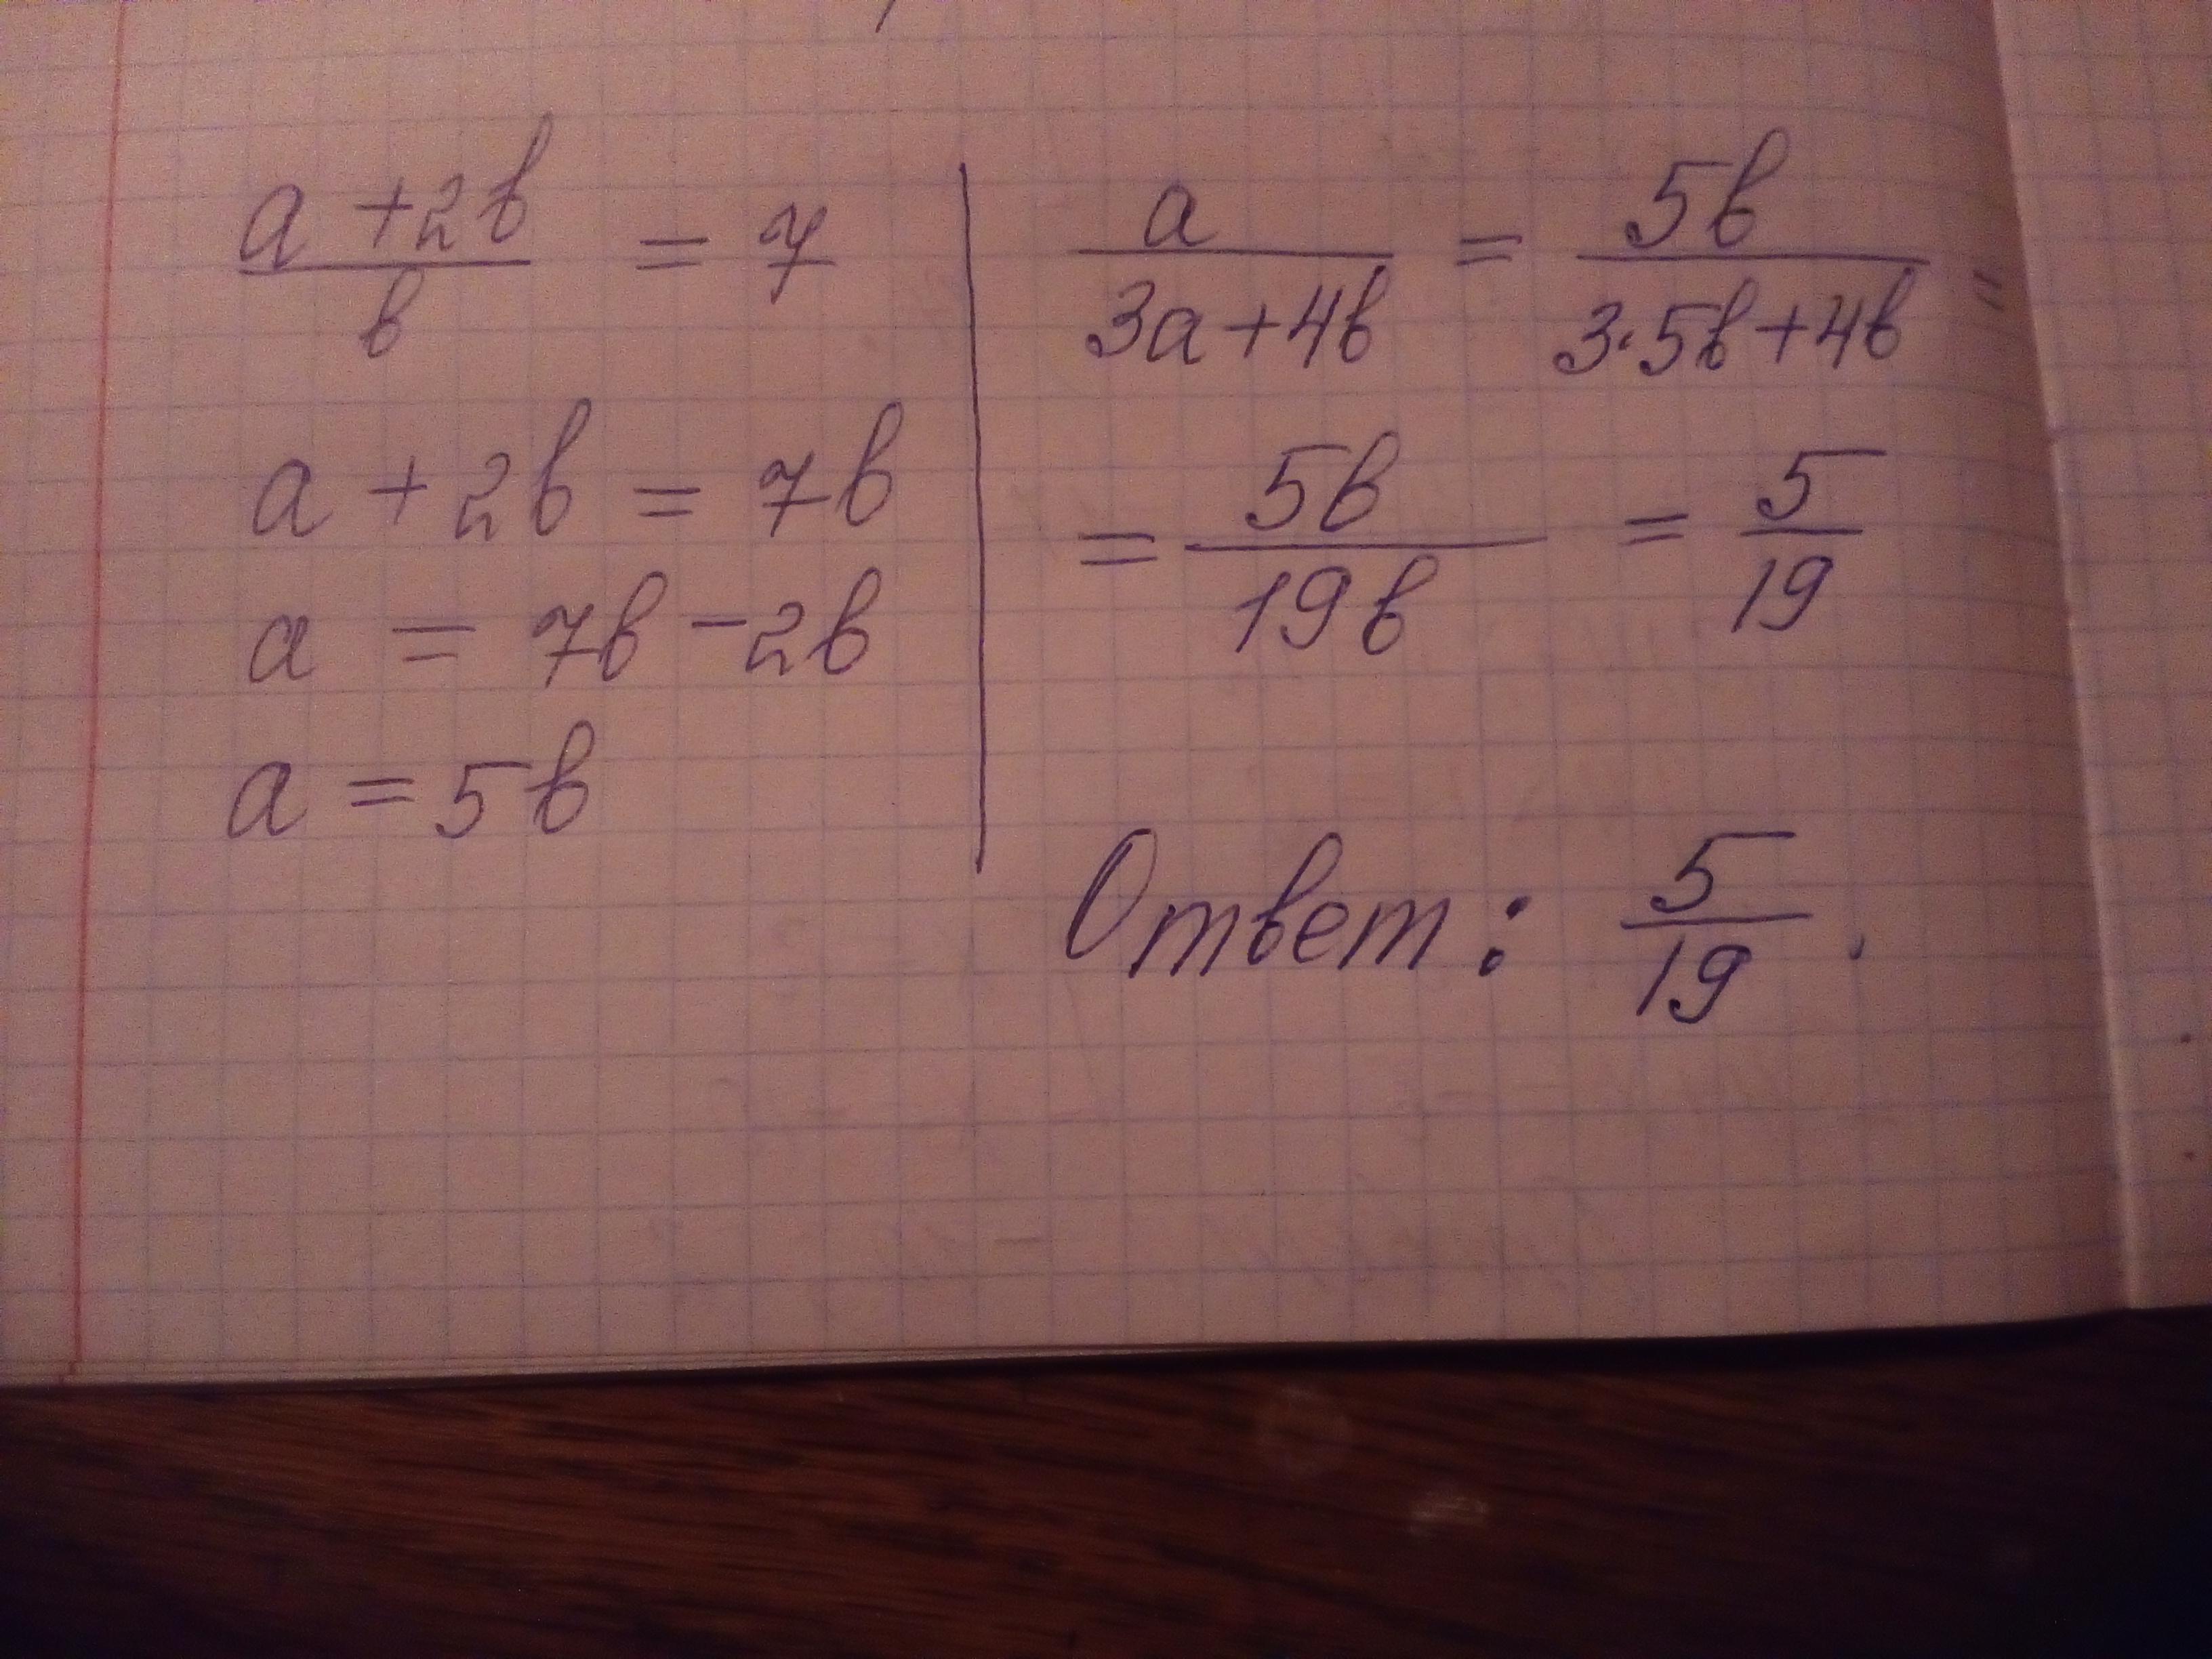 a + 2b / b = 7
a + 2b = 7b
a = 7b - 2b
a = 5b
a / 3a + 4b = 5b / 3·5b + 4b =
= 5b / 19b = 5 / 19
Ответ: 5 / 19 .